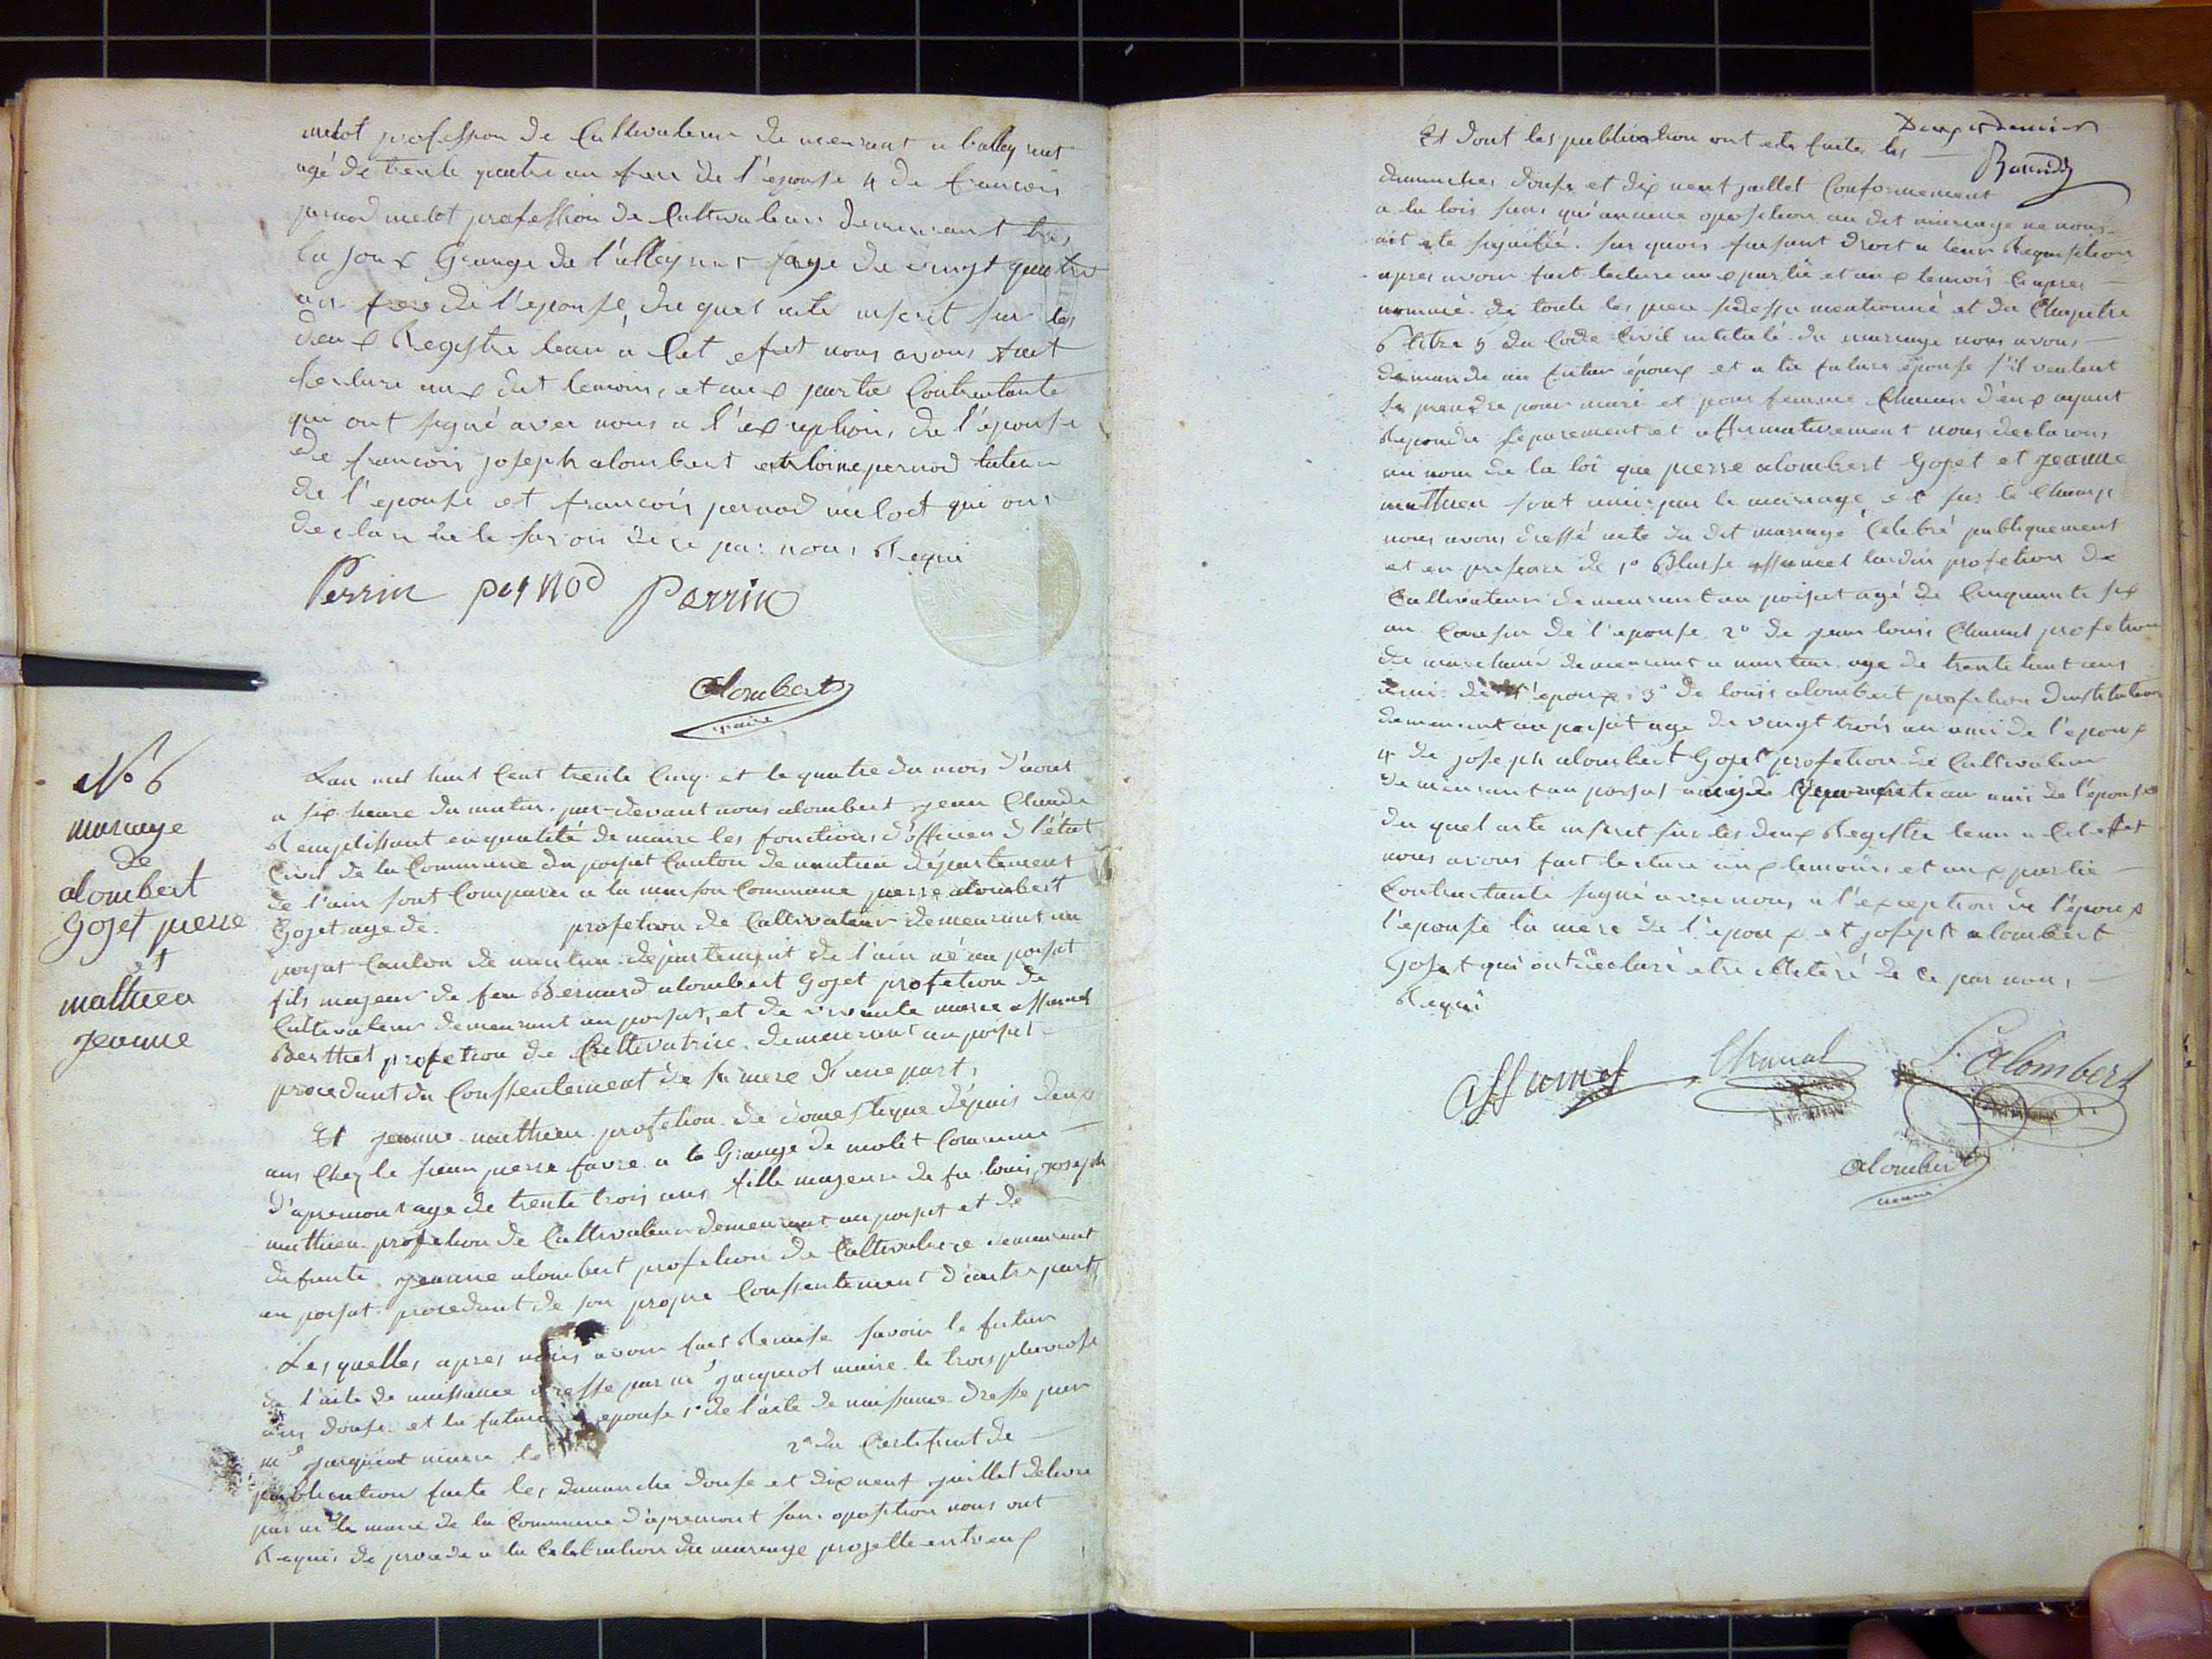 melot profession de Cultivateur demeurant a balleyriat
agé de trente quatre an frere de l'épouse 4 de francois
pernod melot profession de Cultivateur demeurant
la joux Grange de l'alleyriat sage de vingt quatre
an frere de l'epouse, du quel acte inscrit sur les
deux Registre tenu a Cet efet nous avons fait
lecture aux dit temoins, et aux partie Contractante
qui ont signé avec nous a l'exception, de l'épouse
de francois joseph alombert et pernod tuteur
de l'epouse et francois pernod melot qui ont
declaré ne le savoir de ce par nous Requi
Perrin pernod Perrin
Alombert
maire
N° 6
mariage
de
alombert
Gojet pierre
et
mathieu
jeanne
Lan mil huit Cent trente Cinq et le quatre du mois d'aout
a six heure du matin par-devant nous alombert jean Claude
Remplissant en qualité de maire les fonctions d'officier d l'état
Civil de la Commune du poizat Canton de nantua département
de l'ain sont Comparu a la maison Commune pierre alombert
Gojet age de profetion de Cultivateur demeurant au
poizat Canton de nantua département de l'ain né au poisat
fils majeur de feu Bernard alombert Gojet profetion de
Cultivateur demeurant au poisat, et de vivante marie assumel
Berthet profetion de Cultivatrice demeurant au poisat
procedant du Conssentement de sa mere d'une part,
Et jeanne mathieu profetion de domestique dépuis deux
ans Chez le sieur pierre favre a la Grange de molet Commune
d'apremont age de trente trois ans fille majeure de fu louis joseph
mathieu profetion de Cultivateur demeurant au poizat et de
defunte jeanne alombert profetion de Cultivatrice demeurant
au poisat procedant de son propre Conssentement d'autre part,
Lesquelles apres nous avoir fait Remise savoir le futur
de l'acte de naissance dresse par mr jacquiot maire le trois pluviose
ans douse et la future epouse 1° de l'acte de naissance dresse par
mr jacquiot maire le 2° du Certificat de
publication faite les dimanche douse et dix neuf juillet delivre
par mr le maire de la Commune d'apremont sans oposition nous ont
Requis de procede a la Celebration du mariage projette entr'eux
Et dont les publication ont ete faite les
dimanches douse et dix neuf juillet Conformement
a la lois sans qu'aucune oposition au dit mariage ne nous
ait ete signifié. sur quois faisant droit a leur Requisition
apres avoir fait lecture aux partie et aux temois Ciapres
nommé de toute les piece sidessu mentionné et du Chapitre
6 titre 5 du Code Civil intitulé du mariage nous avons
demande au futur époux et a la future épouse s'il veulent
se prendre pour mari et pour femme Chacun d'eux ayant
Repondu séparement et affirmativement nous declarons
au nom de la loi que pierre alombert Gojet et jeanne
mathieu sont unis par le mariage, et sur le Champ
nous avons dressé acte du dit mariage Célebré publiquement
et en presence de 1° Blaise assumel profetion de
Cultivateur demeurant au poisat agé de Cinquante six
an Cousin de l'epouse 2° de jean louis Chanal profetion
de demeurant a nantua age de trente huit ans
ami de l'époux, 3° de louis alombert profetion dinstituteur
demeurant au poisat age de vingt trois an ami de l'époux
4° de joseph alombert Gojet profetion de Cultivateur
demeurant au poisat an ami de l'épouse
du quel acte inscrit sur les deux Registre tenu a Cet effet
nous avons fait lecture aux temoins et aux partie
Contractante signé avec nous, a l'exception de l'époux
l'épouse la mere de l'époux et joseph alombert
Gojet qui ont declaré etre illiteré de ce par nous,
Requi
Assumel Chanal L. Alombert
Alombert
maire